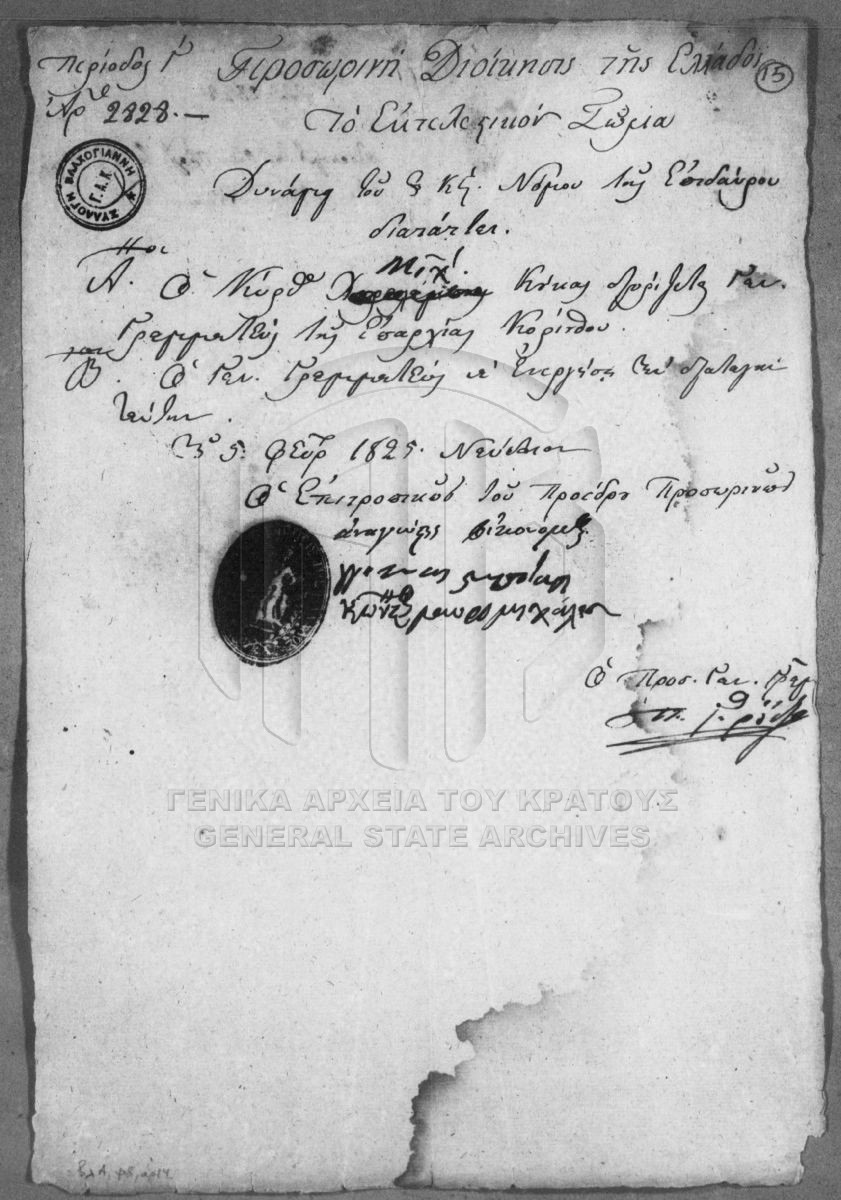 Περίοδος Γ΄ Προσωρινή Διοίκησις τῆς Ἑλλάδος
15
Ἀρ. 2828.—
Τὸ Ἐκτελεστικὸν Σῶμα
ΣΥΛΛΟΓΗ ΒΛΑΧΟΓΙΑΝΝΗ
Γ.Α.Κ.
Δυνάμει τοῦ Νόμου τῆς Ἐπιδαύρου
διατάττει.
Α. Ὁ Κύριος Μιχ. Κύκας διορίζεται Γεν.
Γραμματεὺς τῆς Ἐπαρχίας Κορίνθου.
Β. Ὁ Γεν. Γραμματεὺς νὰ ἐνεργήσῃ τὴν διαταγὴν
ταύτην.
5 Φεβρ 1825. Ναύπλιον
Ὁ Ἐπιτροπικῶς τοῦ Προέδρου Προσωρινῶς
Κωνστ μαυρομηχάλης
Ὁ Προσ. Γεν. Γραμ
ΓΕΝΙΚΑ ΑΡΧΕΙΑ ΤΟΥ ΚΡΑΤΟΥΣ
GENERAL STATE ARCHIVES